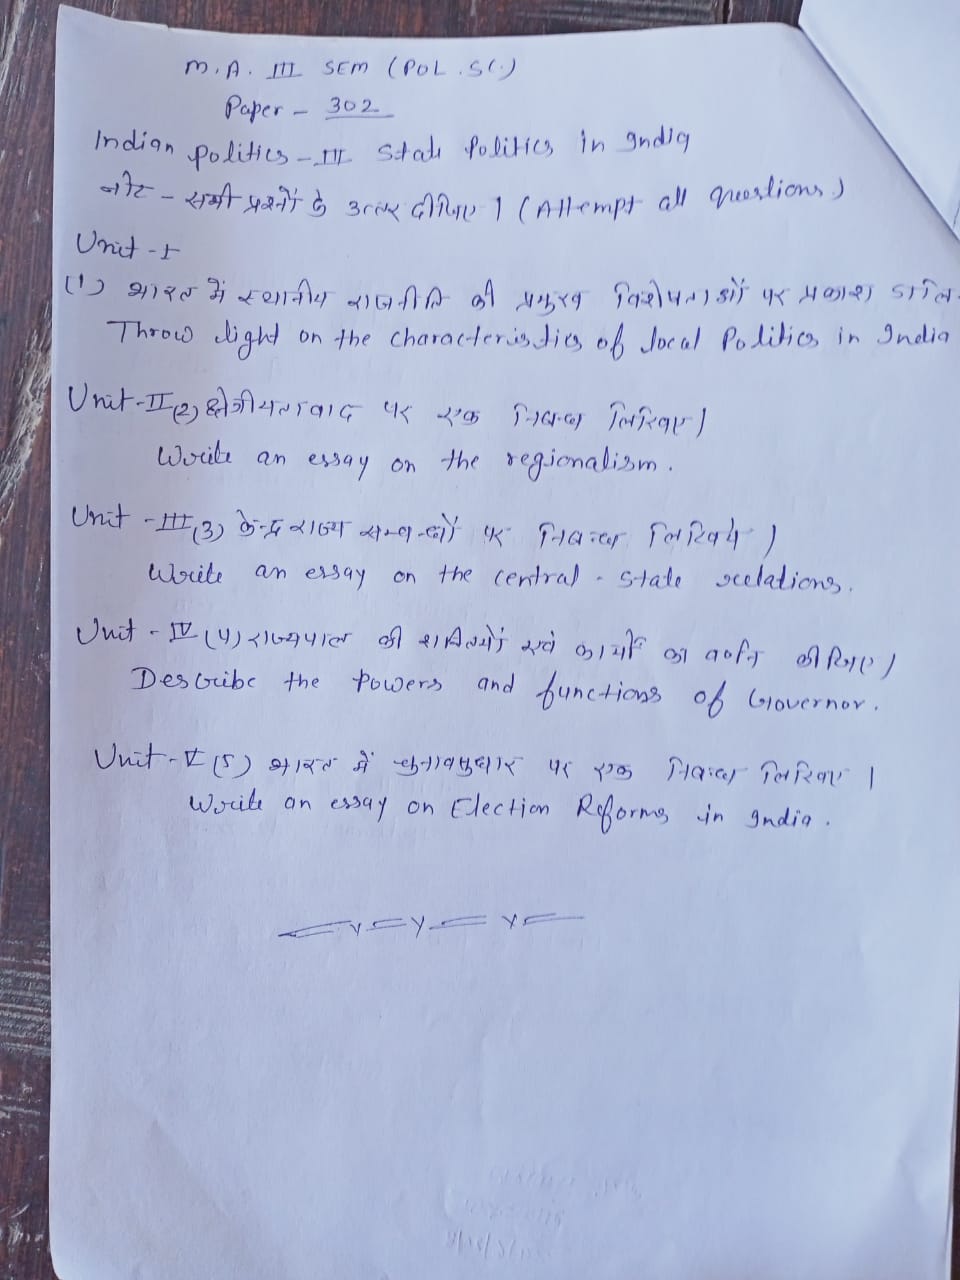 M.A. III SEM (POL.SC.)
Paper - 302
Indian Politics - III State Politics in India
नोट - सभी प्रश्नों के उत्तर दीजिए । (Attempt all questions)
Unit - I
(1) भारत में स्थानीय राजनीति की प्रमुख विशेषताओं पर प्रकाश डालि
Throw light on the characteristics of local Politics in India
Unit-II (2) क्षेत्रीयतावाद पर एक निबन्ध लिखिए।
Write an essay on the regionalism.
Unit - III (3) केन्द्र राज्य सम्बन्धों पर निबन्ध लिखिये ।
Write an essay on the central - State relations.
Unit - IV (4) राज्यपाल की शक्तियों एवं कार्यों का वर्णन कीजिए ।
Describe the Powers and functions of Governor.
Unit - V (5) भारत में चुनावसुधार पर एक निबन्ध लिखिए ।
Write an essay on Election Reforms in India.